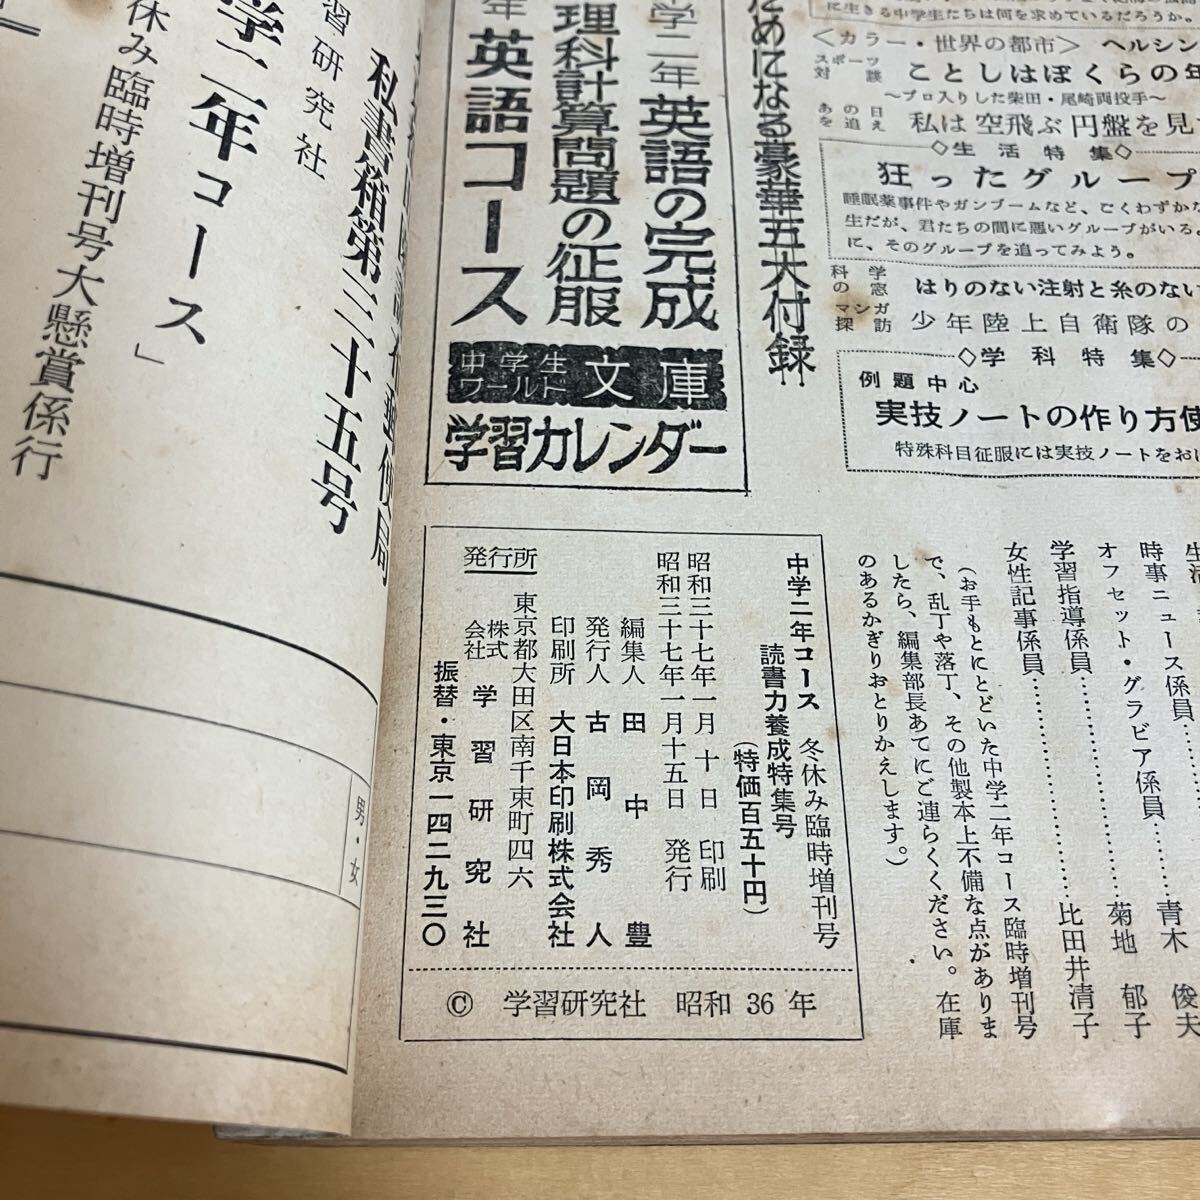 に生きる中学生たちは何を求めているだろうか。
＜カラー・世界の都市＞ ヘルシン
スポーツ対談 ことしはぼくらの年
～プロ入りした柴田・尾崎両投手～
あの日を追え 私は空飛ぶ円盤を見
◇生活特集◇
狂ったグループ
睡眠薬事件やガンブームなど、ごくわずかな
生だが、君たちの間に悪いグループがいる。
に、そのグループを追ってみよう。
科学の窓 はりのない注射と糸のない
マンガ探訪 少年陸上自衛隊の
◇学科特集◇
例題中心
実技ノートの作り方使
特殊科目征服には実技ノートをおけ
ためになる豪華五大付録
中学二年 英語の完成
理科計算問題の征服
年 英語コース
中学生ワールド文庫
学習カレンダー
時事ニュース係員……青木 俊夫
オフセット・グラビア係員……菊地 郁子
学習指導係員……比田井清子
女性記事係員……
（お手もとにとどいた中学二年コース臨時増刊号
で、乱丁や落丁、その他製本上不備な点がありま
したら、編集部長あてにご連らくください。在庫
のあるかぎりおとりかえします。）
中学二年コース 冬休み臨時増刊号
読書力養成特集号
（特価百五十円）
昭和三十七年一月十日 印刷
昭和三十七年一月十五日 発行
編集人 田中 豊
発行人 古岡秀人
印刷所 大日本印刷株式会社
東京都大田区南千束町四六
発行所 株式会社 学習研究社
振替・東京一四二九三〇
© 学習研究社 昭和36年
私書箱第三十五号
習研究社
学二年コース」
休み臨時増刊号大懸賞係行
男・女